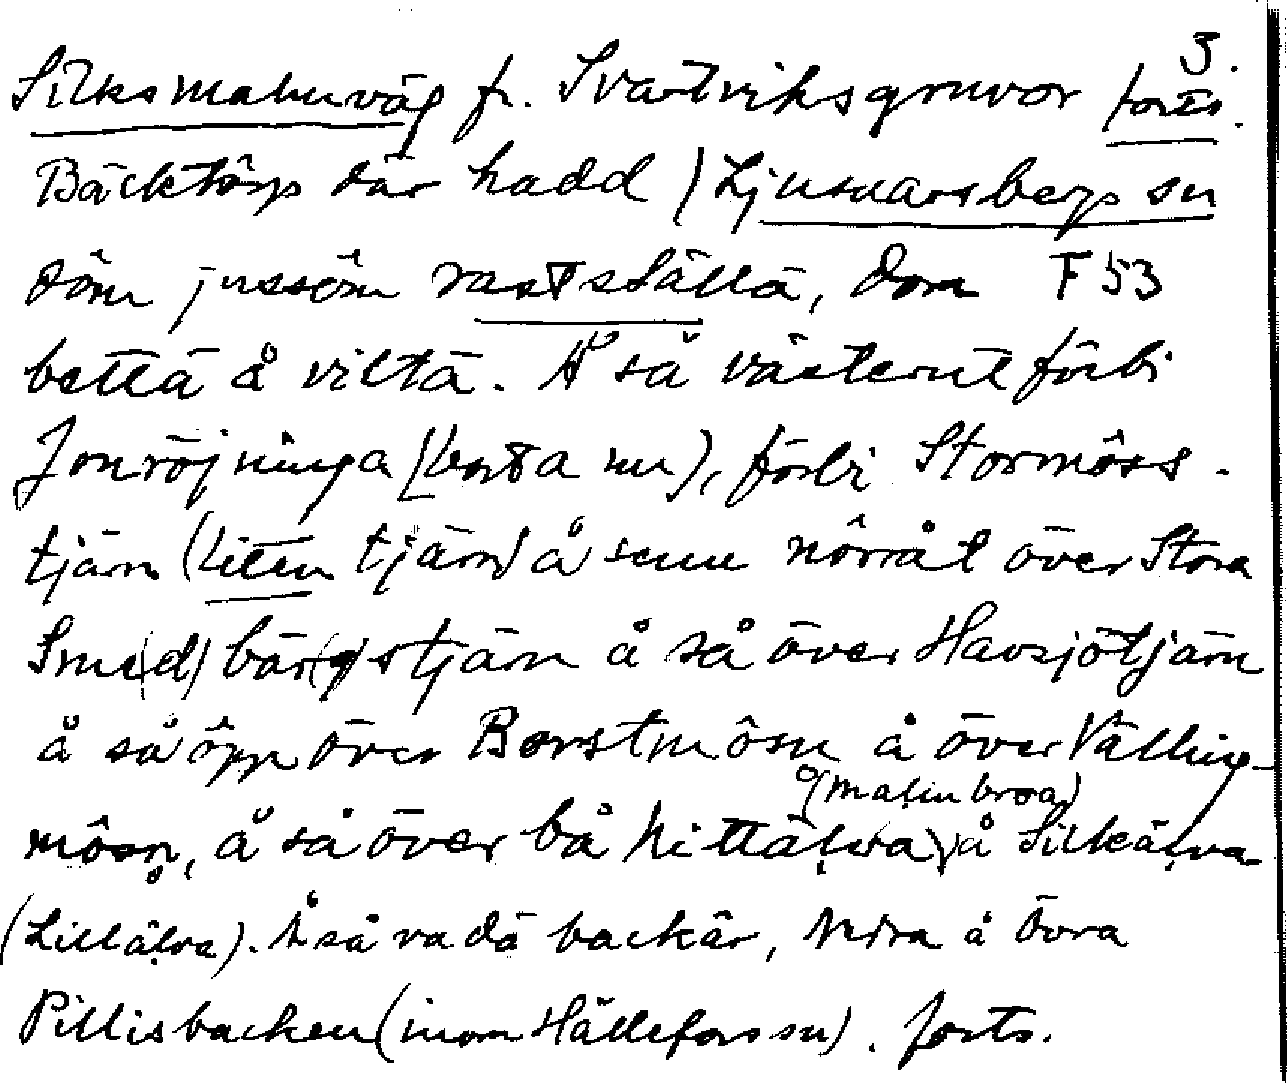 3.
Silksmalmväg fr. Svartviksgruvor forts.
Bäcktôrp där hadd / Ljusnarsberg sn
dôm jussôm rastställä, dom F 53
bettä å viltä. Å så västerut förbi
Jonröjninga (borta nu), förbi Stormôss-
tjärn (liten tjärn) å senn nôrråt över Stora
Sme(d)bär(g)stjärn å så över Havsjötjärn
å så ôpp över Borstmôsn å över Välling-
(malmbroa)
môsn, å så över bå Nittälva å Silkälva
(Lillälva). Å så va dä backär, Nedra å Övra
Pillisbacken (inom Hällefors sn). forts.